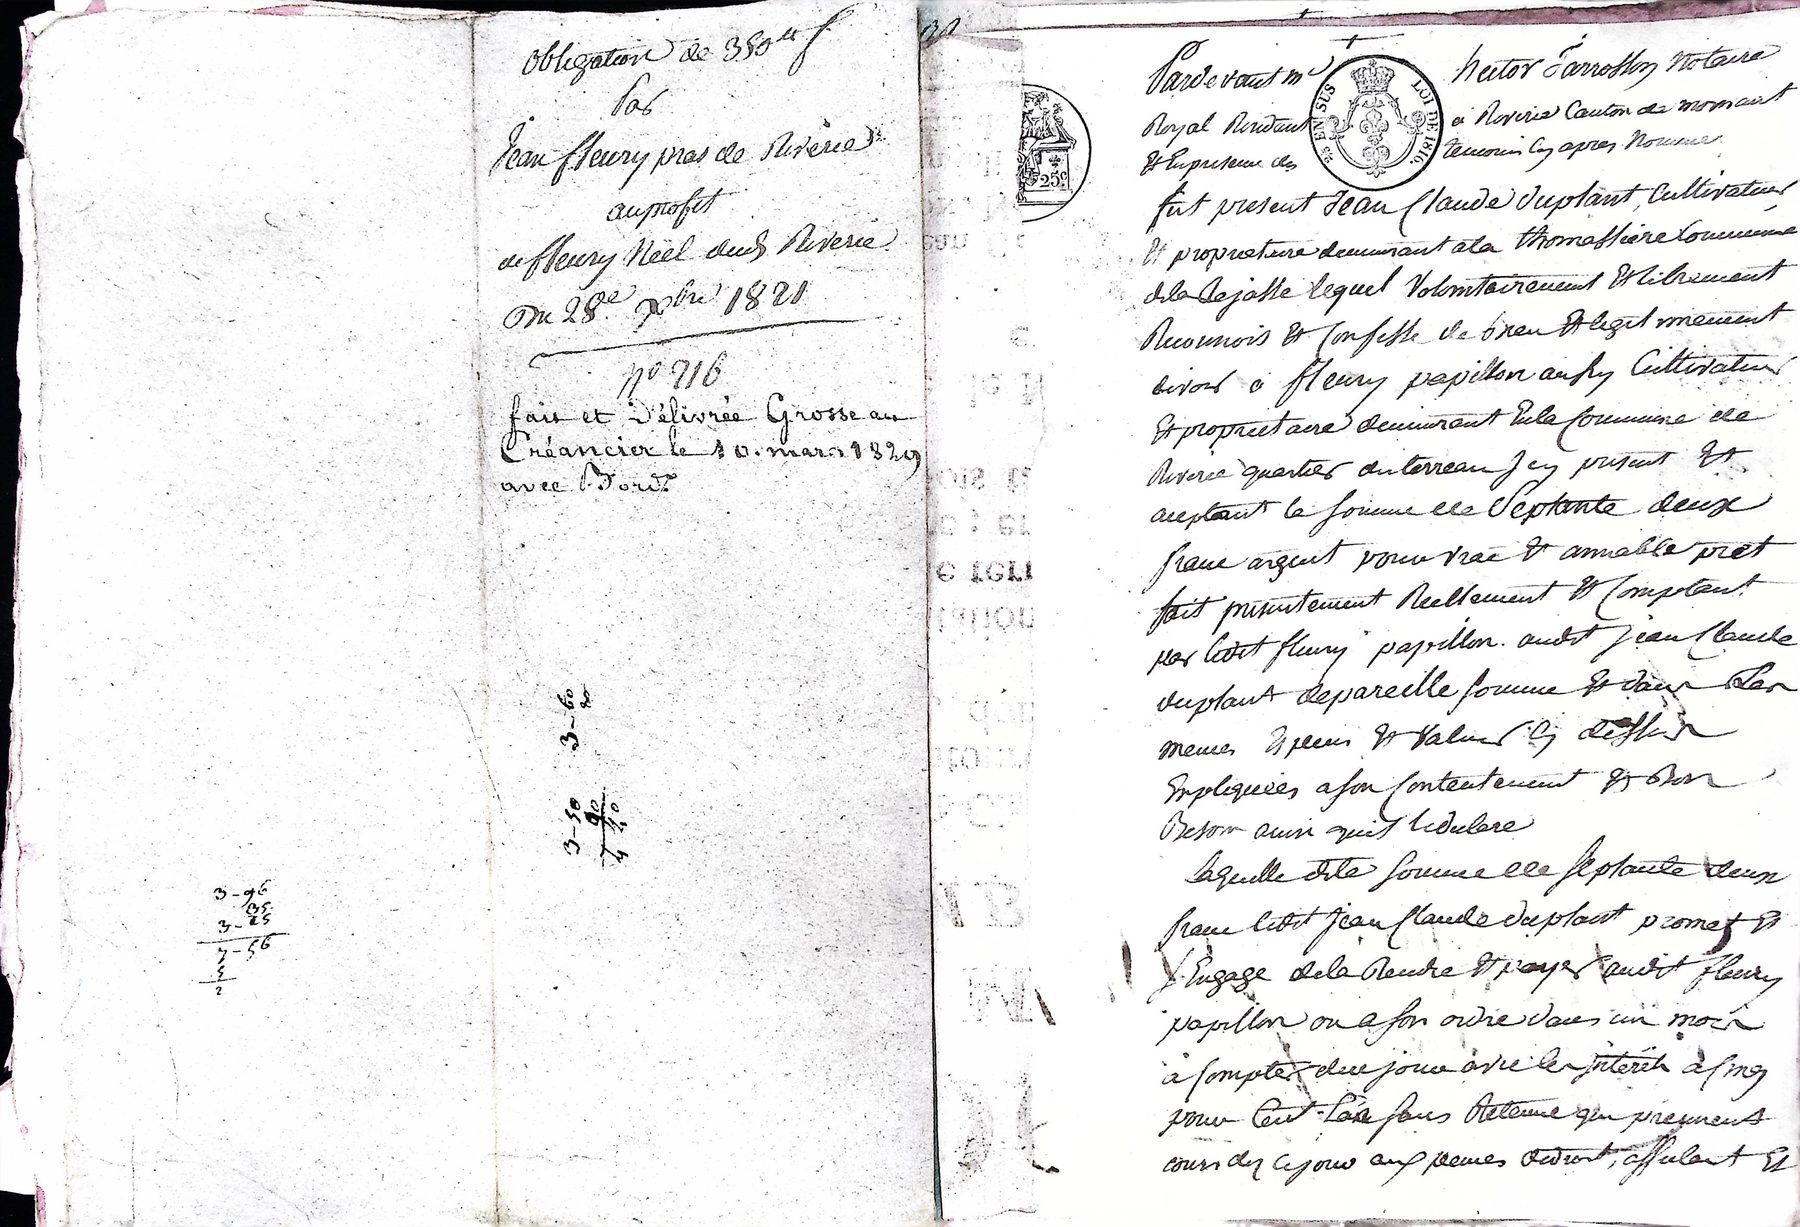 Obligation de 350 f.
Par
Jean fleury pras de Riverie
au profit
de fleury Néel dud. Riverie
Du 28e. Xbre 1821
No 216
fait et Délivrée Grosse au
Créancier le 10. mars 1829
avec Bord.
3-60
3-50
90
3-96
35
3-25
7-56
5
2
25 EN SUS
LOI DE 1816.
25c.
Pardevant me hector farrossny Notaire
Royal Residant a Riverie Canton de mornant
Et En presence des temoins cy apres Nommes
fut present Jean Claude duplant, Cultivateur
Et proprietaire demeurant a la thomassiere Commune
de la Rejasse lequel Volontairement Et librement
Reconnois Et Confesse de bien Et legitimement
devoir a fleury papillon aussy Cultivateur
Et proprietaire demeurant En la Commune de
Riverie quartier du terreau Jcy present Et
aceptant la somme de Septante deux
franc argent pour vrai Et amiable pret
fait presentement Reellement Et Comptant
par ledit fleury papillon audit Jean Claude
duplant de pareille somme Et dans Les
memes Especes Et Valeur cy dessus
Expliquées a son Contentement Et Bon
Besoin ainsi quil le declare
Laquelle dite somme de septante deux
franc ledit Jean Claude duplant promet Et
s'Engage de la Rendre Et payer audit fleury
papillon ou a son ordre dans un mois
à Compter de ce jour avec les jnterêts a Cinq
pour Cent L'an sans Retenue qui prennent
cours dez ce jour aux peines de droit, affectant Et